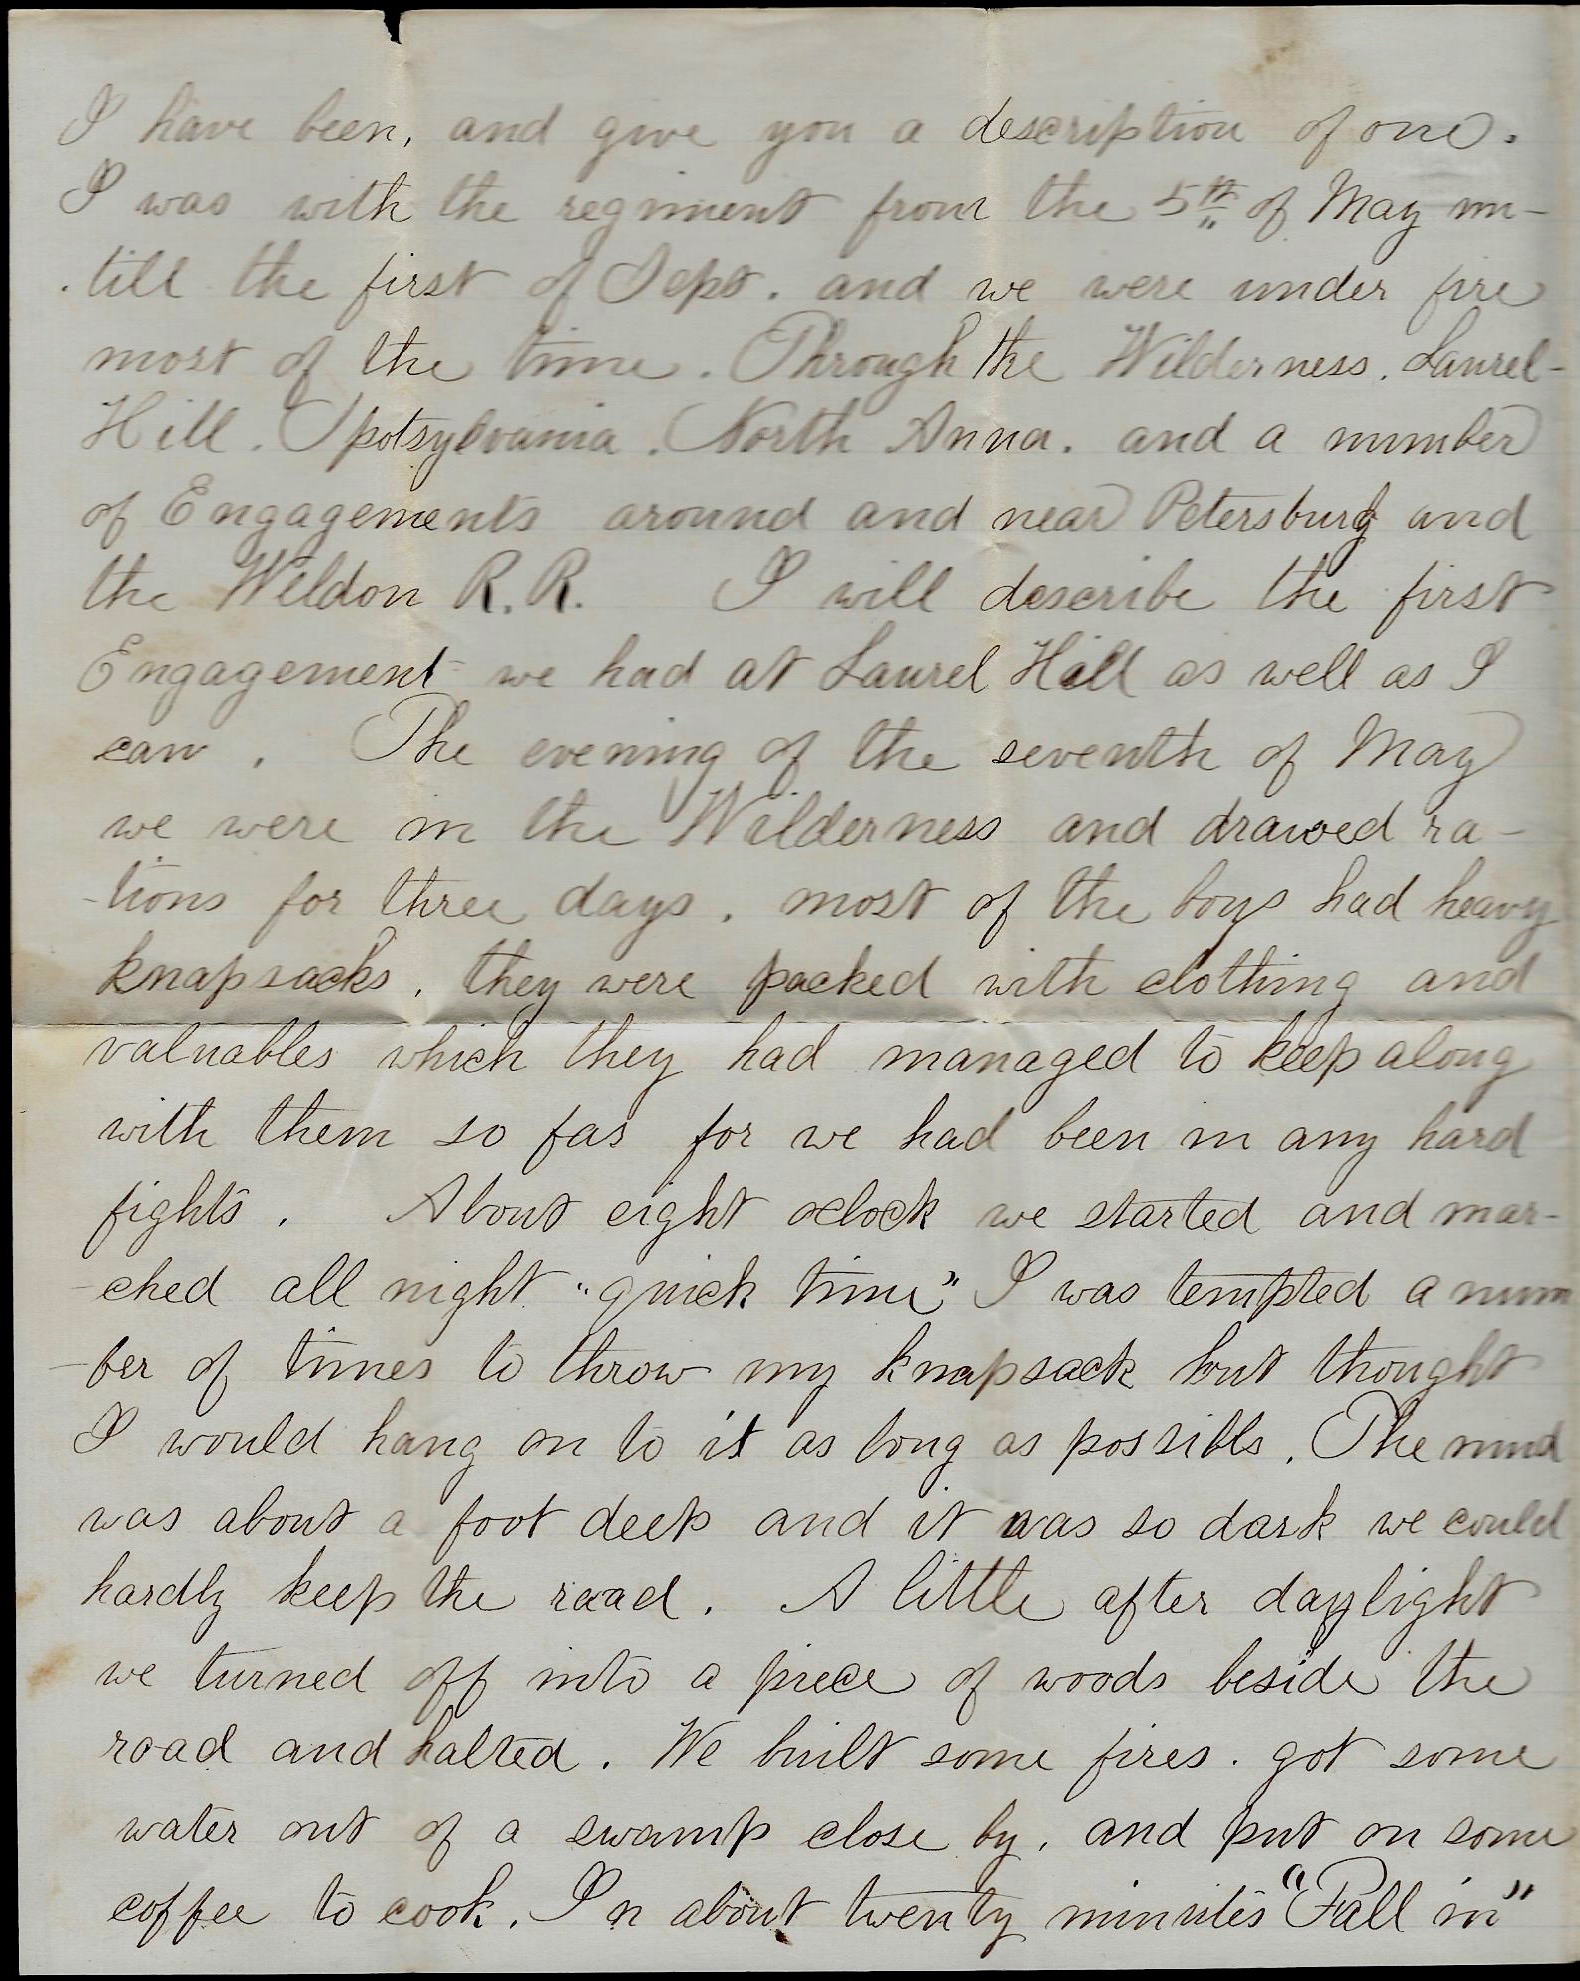 I have been, and give you a description of one.
I was with the regiment from the 5th of May un-
till the first of Sept. and we were under fire
most of the time. Through the Wilderness. Laurel-
Hill. Spotsylvania. North Anna. and a number
of Engagements around and near Petersburg and
the Weldon R.R. I will describe the first
Engagement we had at Laurel Hill as well as I
can. The evening of the seventh of May
we were in the Wilderness and drawed ra-
-tions for three days. most of the boys had heavy
knapsacks. they were packed with clothing and
valuables which they had managed to keep along
with them so far for we had been in any hard
fights. About eight oclock we started and mar-
-ched all night "quick time" I was tempted a num
-ber of times to throw my knapsack but thought
I would hang on to it as long as possible. The mud
was about a foot deep and it was so dark we could
hardly keep the road. A little after daylight
we turned off into a piece of woods beside the
road and halted. We built some fires. got some
water out of a swamp close by. and put on some
coffee to cook. In about twenty minutes "Fall in"